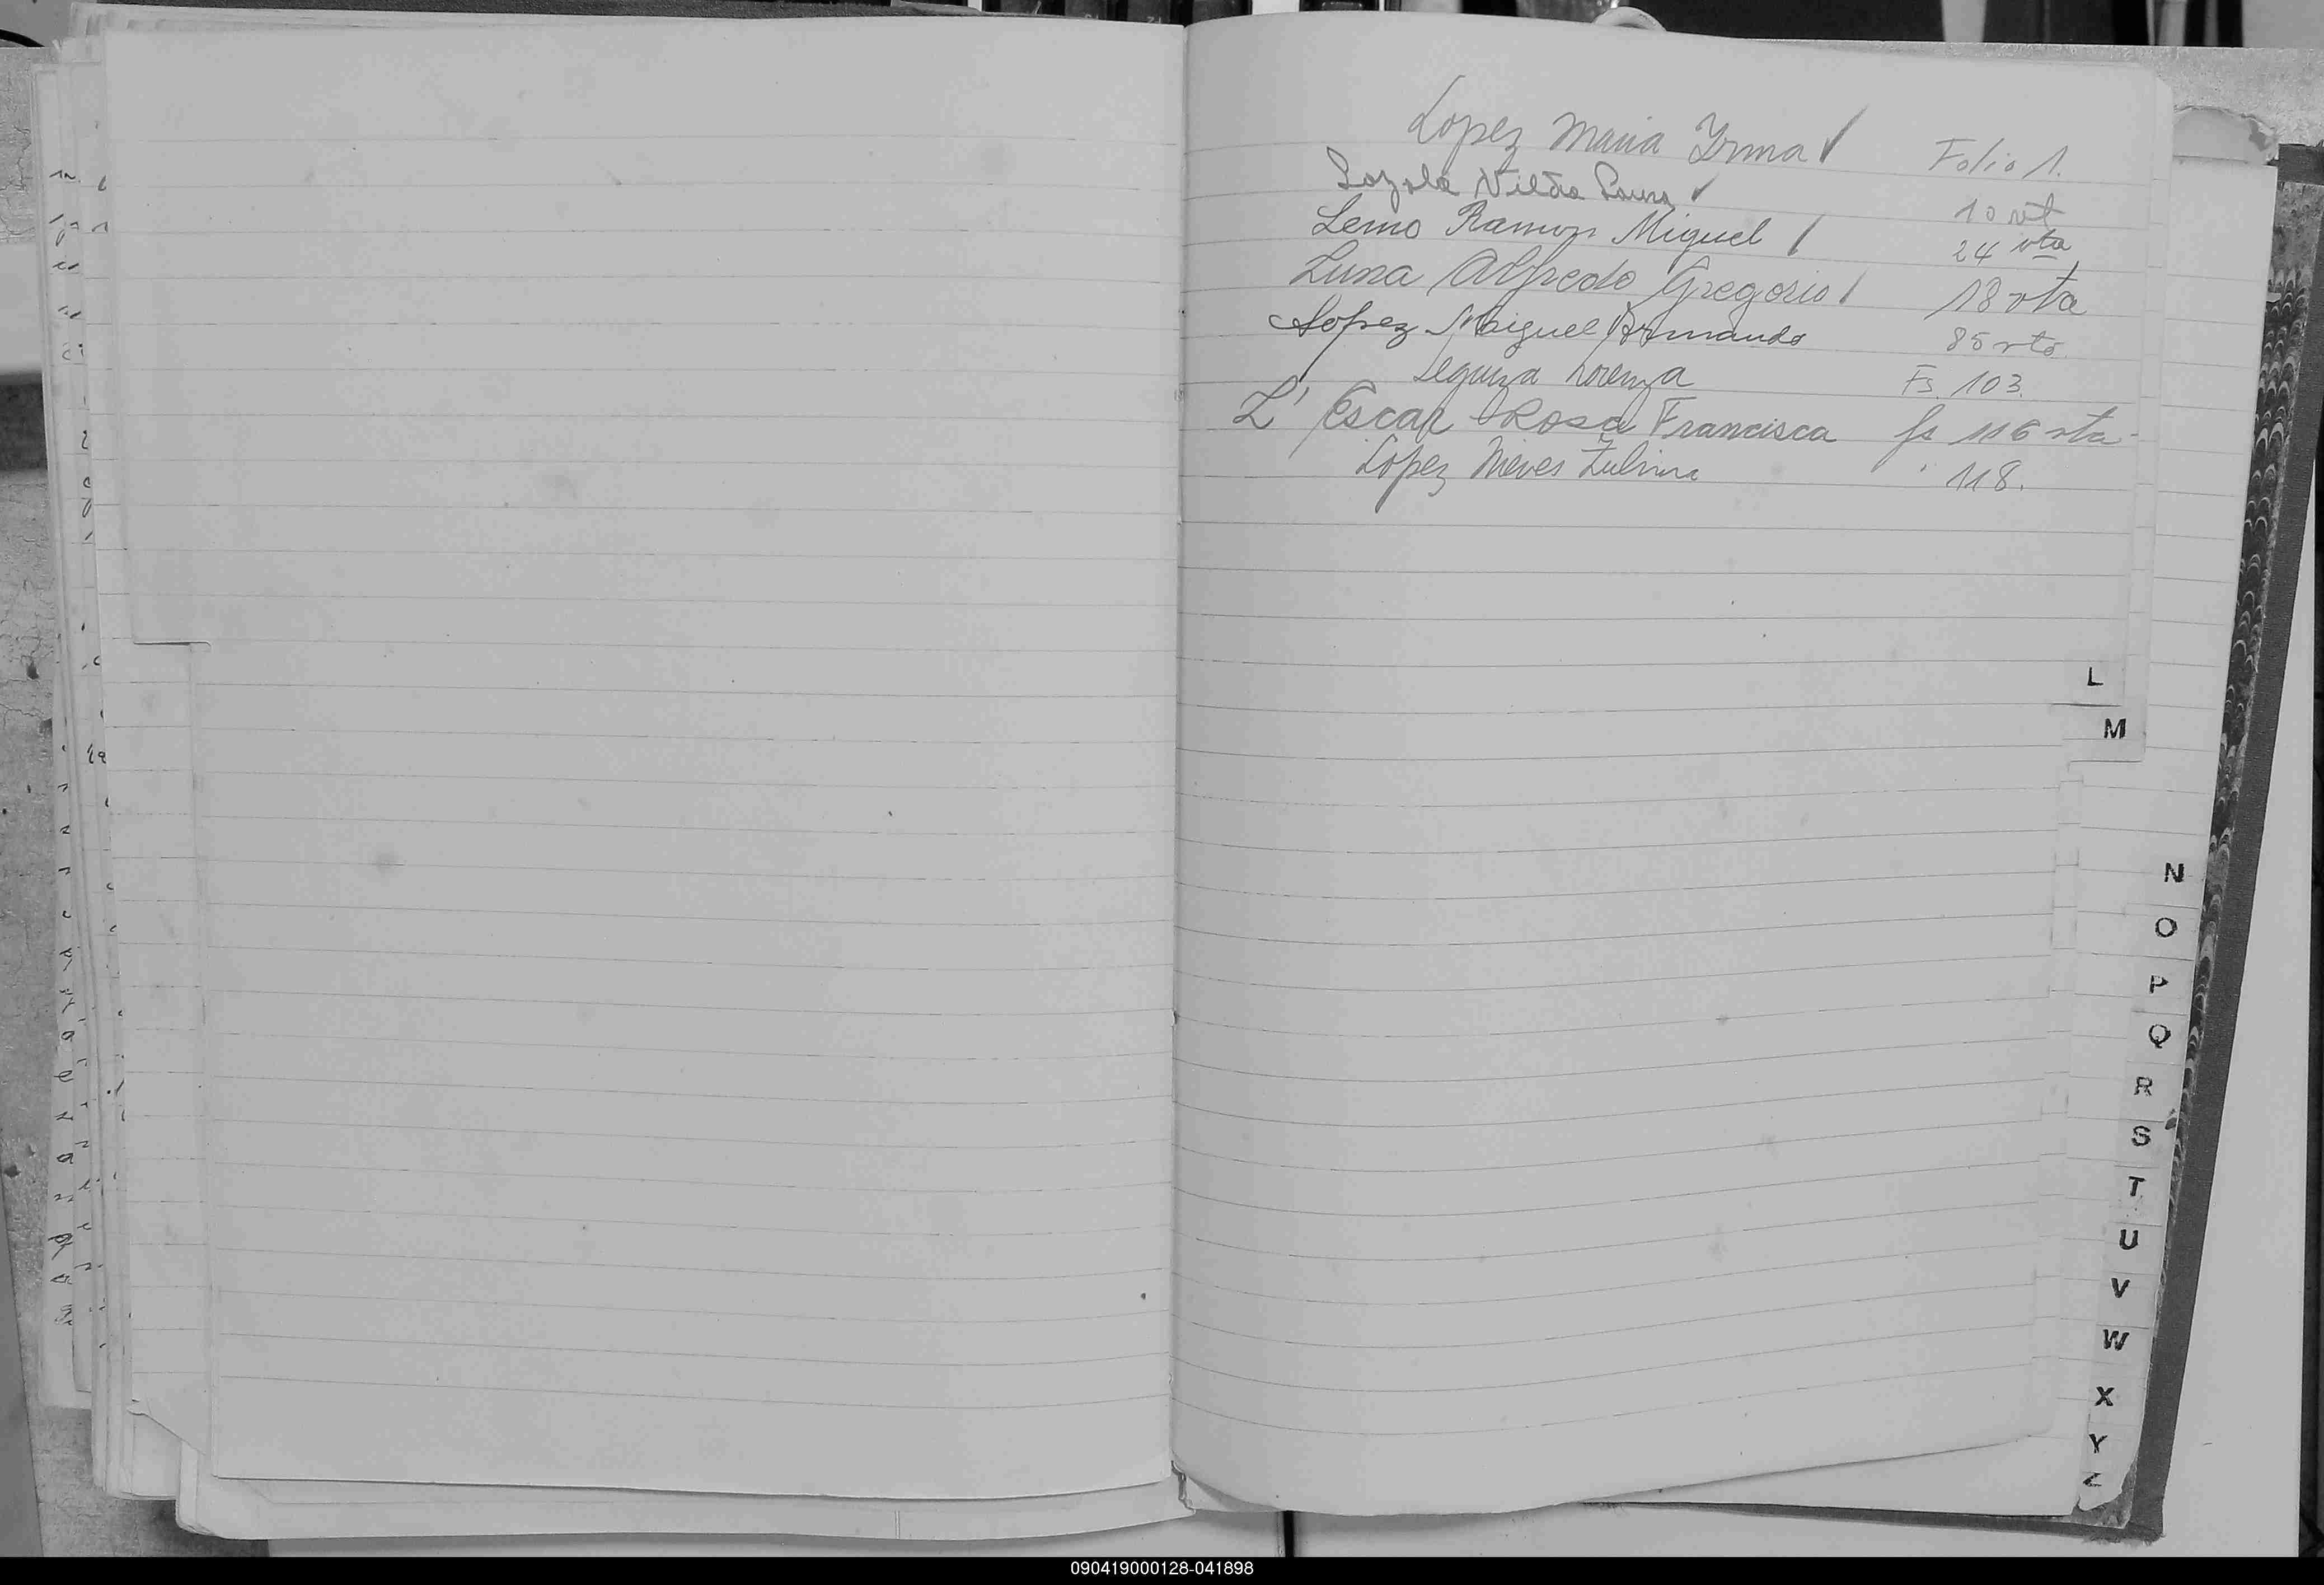 Lopez Maria Irma ✓ Folio 1.
Loyola Nilda Laura ✓ 10 vt
Lemo Ramon Miguel / 24 vta
Luna Alfredo Gregorio / 18 vta
Lopez Miguel Armando 85 vto
Leguiza Lorenza Fs. 103.
L' Escar Rosa Francisca fs 116 vta
Lopez Nieves Zulima " 118.
L
M
N
O
P
Q
R
S
T
U
V
W
X
Y
Z
090419000128-041898